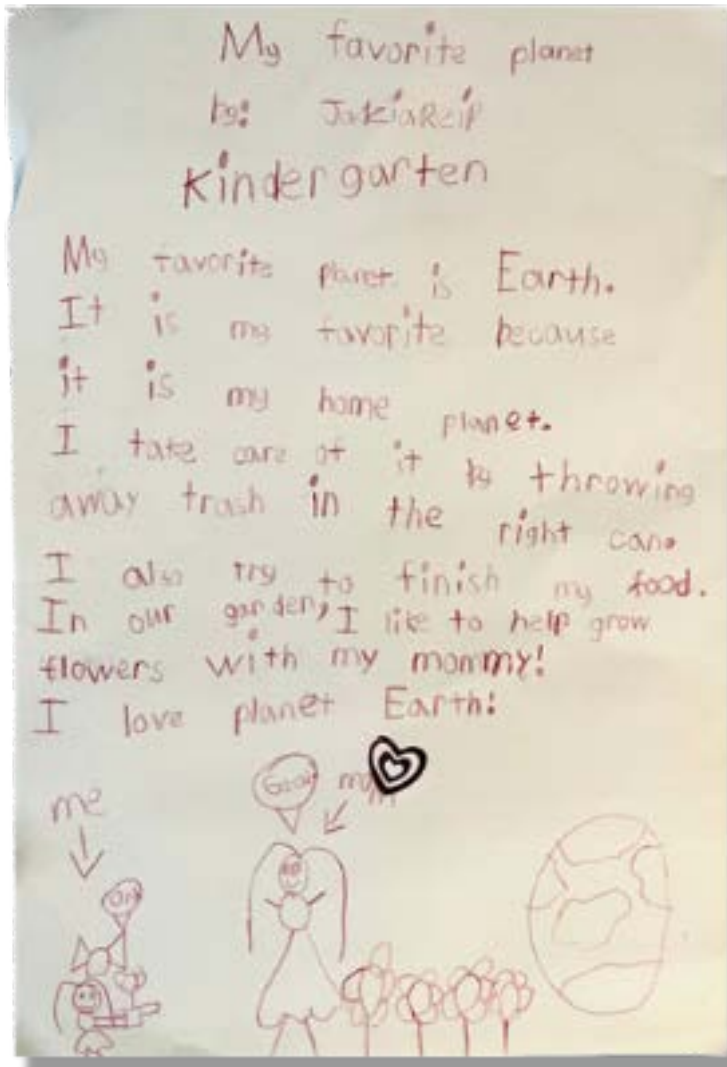 My favorite planet
by:
Kindergarten
My favorite planet is Earth.
It is my favorite because
it is my home planet.
I take care of it by throwing
away trash in the right can.
I also try to finish my food.
In our garden, I like to help grow
flowers with my mommy!
I love planet Earth!
me
mom